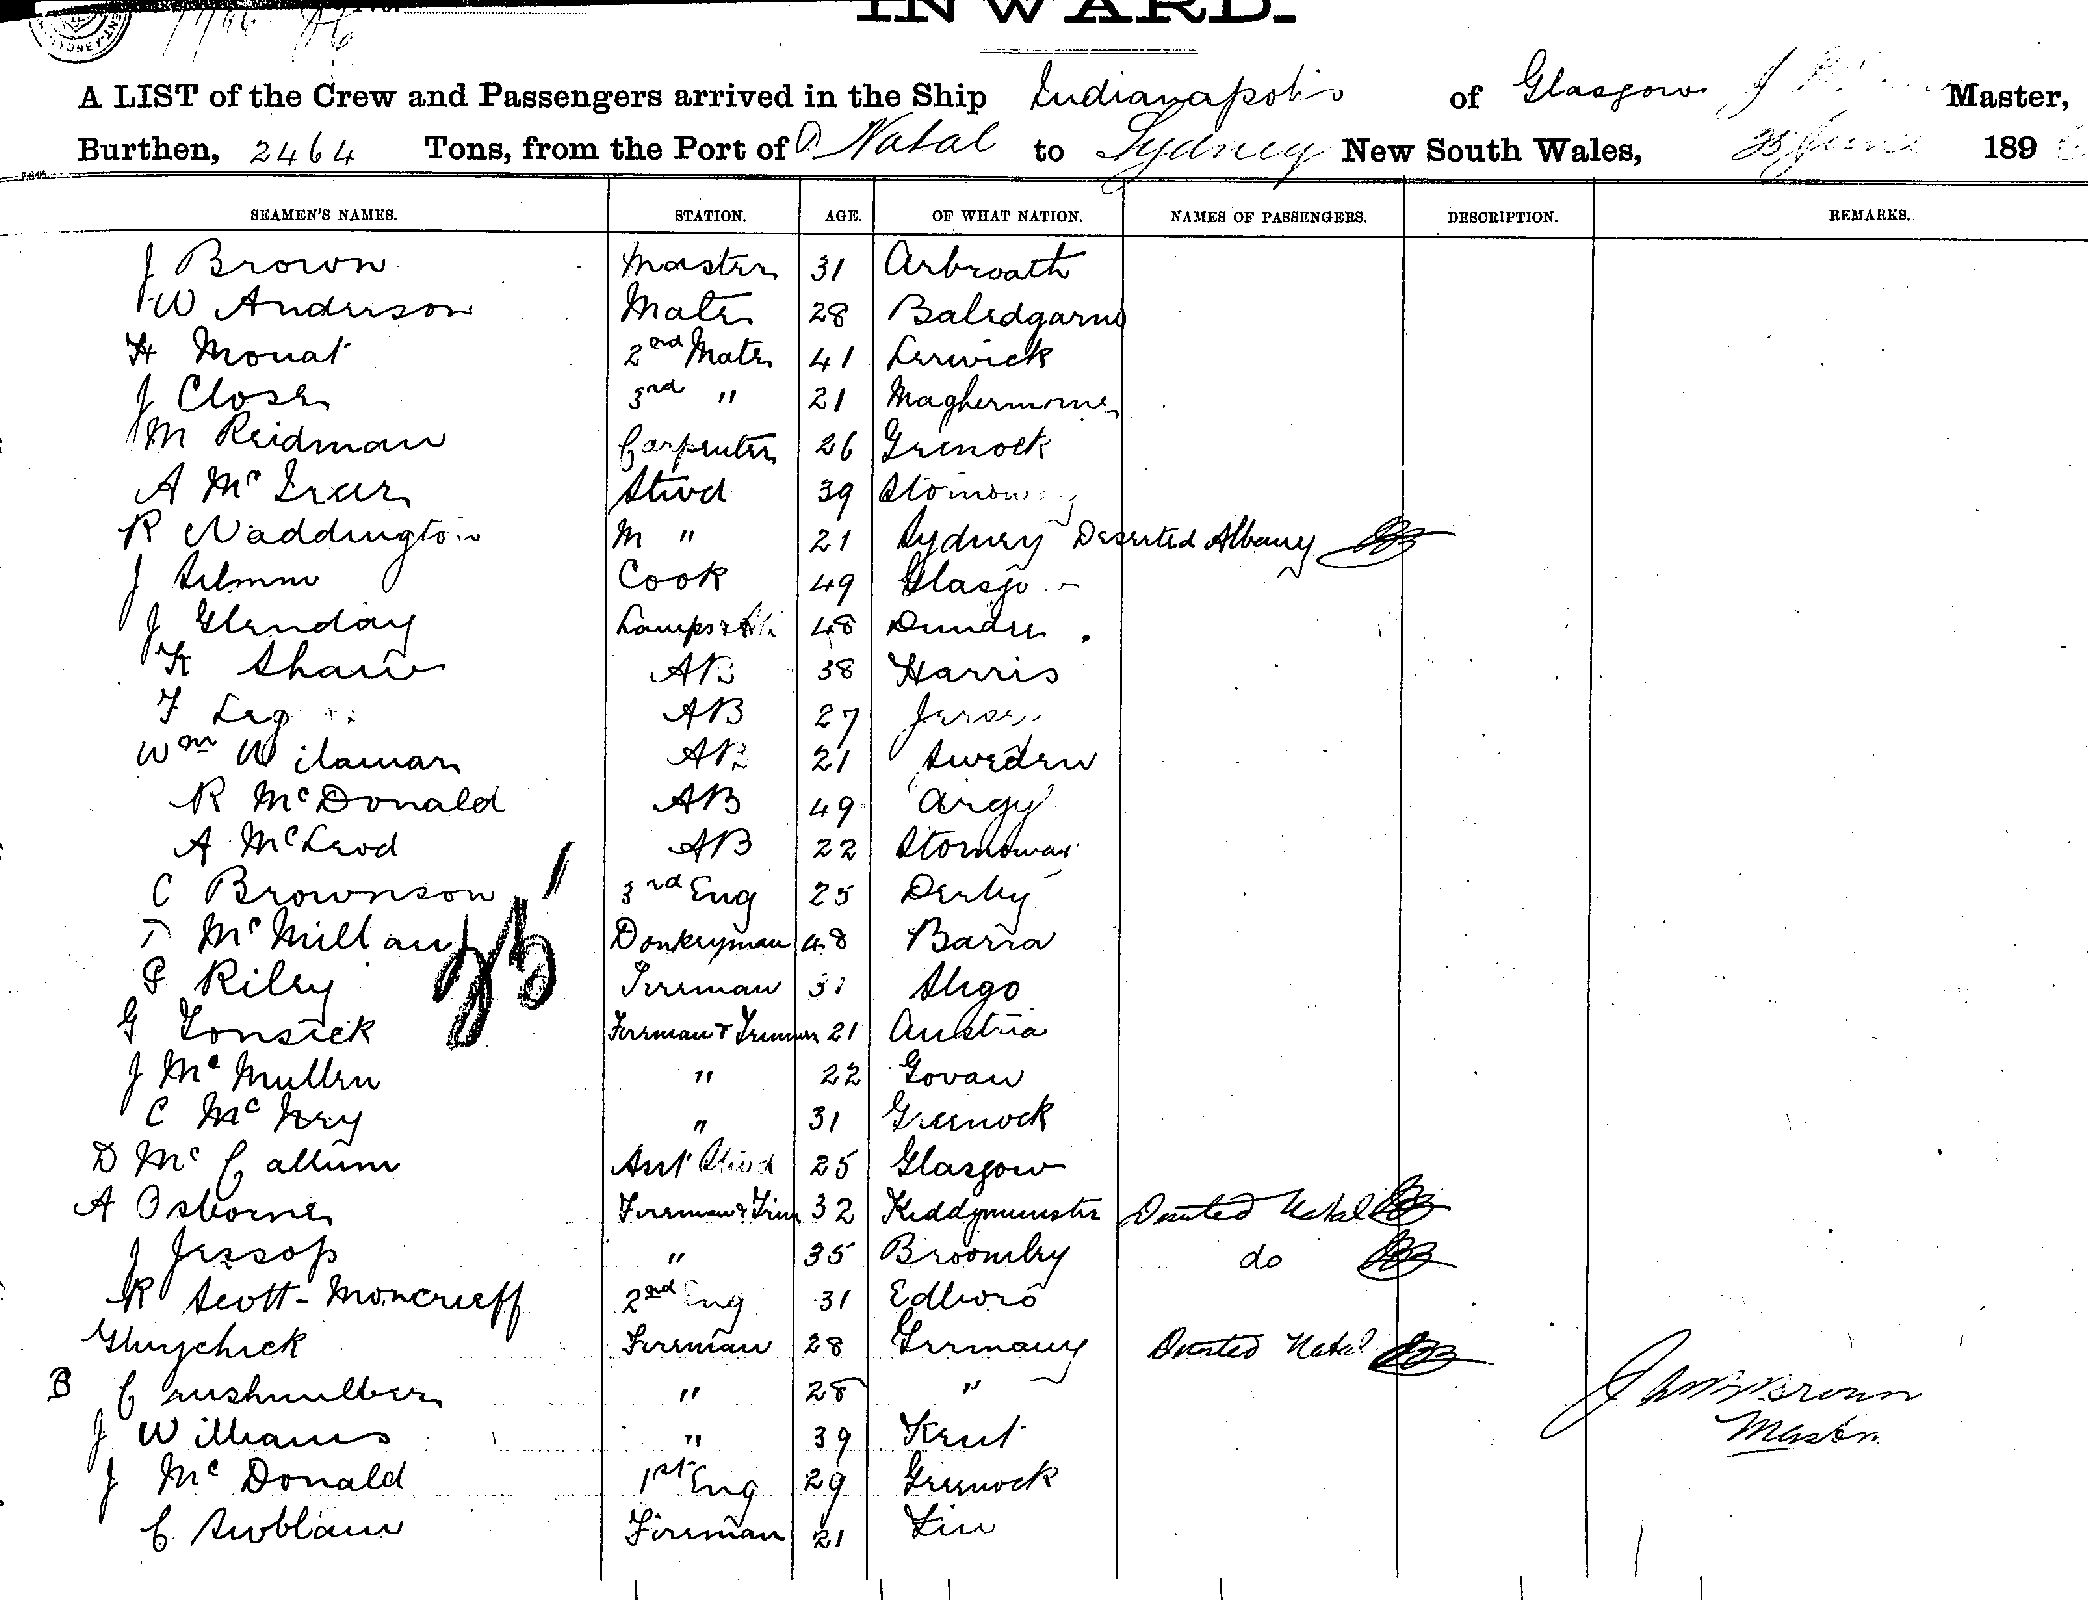 INWARD.
A LIST of the Crew and Passengers arrived in the Ship Indianapolis of Glasgow J Master,
Burthen, 2464 Tons, from the Port of P Natal to Sydney New South Wales, 25 June 189
SEAMEN'S NAMES. STATION. AGE. OF WHAT NATION. NAMES OF PASSENGERS. DESCRIPTION. REMARKS.
J Brown Master 31 Arbroath
W Anderson Mate 28 Baledgarno
H Mouat 2nd Mate 41 Lerwick
J Close 3rd " 21 Maghermorne
M Reidman Carpenter 26 Grenock
A Mc Stewd 39
R Waddington M " 21 Sydney Deserted Albany
J Cook 49
J Glenday Lamps 48 Dundee
H Shaw AB 38 Harris
F AB 27
Wm Wilaman AB 21 Sweden
R McDonald AB 49 Argy
A McLeod AB 22 Stornoway
C Brownson 3rd Eng 25 Derby
Mc Millan Donkeyman 48 Barra
P Riley Fireman 31 Sligo
G Fireman & Trimmer 21 Austria
J Mc Mullen " 22 Govan
C Mc " 31 Greenock
D Mc Callum Asst Stewd 25 Glasgow
A Osborne Fireman & Trim 32 Kiddyminster Deserted Natal
J Jessop " 35 Broomley do
R Scott-Moncrieff 2nd Eng 31 Edboro
Fireman 28 Germany Deserted Natal
B " 28 "
J Williams " 39 Kent
J Brown
Master
J Mc Donald 1st Eng 29 Greenock
C Fireman 21